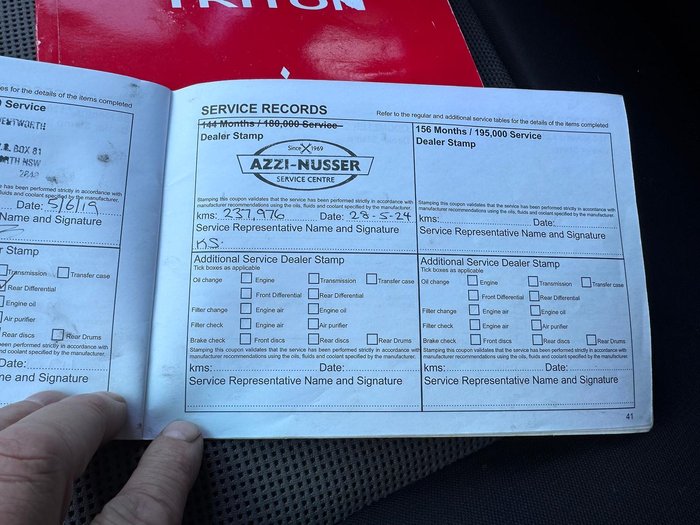 TRITON
es for the details of the items completed
Service
WENTWORTH
BOX 81
RTH NSW
has been performed strictly in accordance with
fluids and coolant specified by the manufacturer.
Date: 5/6/19
Name and Signature
r Stamp
Transmission Transfer case
Rear Differential
Engine oil
Air purifier
Rear discs Rear Drums
has been performed strictly in accordance with
nd coolant specified by the manufacturer.
Date:
me and Signature
SERVICE RECORDS
Refer to the regular and additional service tables for the details of the items completed
144 Months / 180,000 Service
Dealer Stamp
Since 1969
AZZI-NUSSER
SERVICE CENTRE
Stamping this coupon validates that the service has been performed strictly in accordance with
manufacturer recommendations using the oils, fluids and coolant specified by the manufacturer.
kms: 237,976 Date: 28-5-24
Service Representative Name and Signature
KS
156 Months / 195,000 Service
Dealer Stamp
Stamping this coupon validates that the service has been performed strictly in accordance with
manufacturer recommendations using the oils, fluids and coolant specified by the manufacturer.
kms: Date:
Service Representative Name and Signature
Additional Service Dealer Stamp
Tick boxes as applicable
Oil change Engine Transmission Transfer case
Front Differential Rear Differential
Filter change Engine air Engine oil
Filter check Engine air Air purifier
Brake check Front discs Rear discs Rear Drums
Stamping this coupon validates that the service has been performed strictly in accordance with
manufacturer recommendations using the oils, fluids and coolant specified by the manufacturer.
kms: Date:
Service Representative Name and Signature
Additional Service Dealer Stamp
Tick boxes as applicable
Oil change Engine Transmission Transfer case
Front Differential Rear Differential
Filter change Engine air Engine oil
Filter check Engine air Air purifier
Brake check Front discs Rear discs Rear Drums
Stamping this coupon validates that the service has been performed strictly in accordance with
manufacturer recommendations using the oils, fluids and coolant specified by the manufacturer.
kms: Date:
Service Representative Name and Signature
41